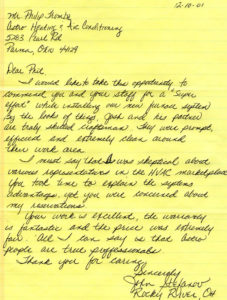 12-10-01
Mr. Philip
Astro Heating & Air Conditioning
5283 Pearl Rd.
Parma, Ohio 44129
Dear Phil,
I would like to take this opportunity to
commend you and your staff for a "Super
effort" while installing our new furnace system
By the looks of things, Josh and his partner
are truly skilled craftsmen. They were prompt,
efficient and extremely clean around
their work area.
I must say that I was skeptical about
various representatives in the HVAC marketplace.
You took time to explain the systems
advantages, yet you were concerned about
my reservations.
Your work is excellent, the warranty
is fantastic and the price was extremely
fair. All I can say is that Astro
people are true professionals.
Thank you for caring.
Sincerely,
John
Rocky River, OH